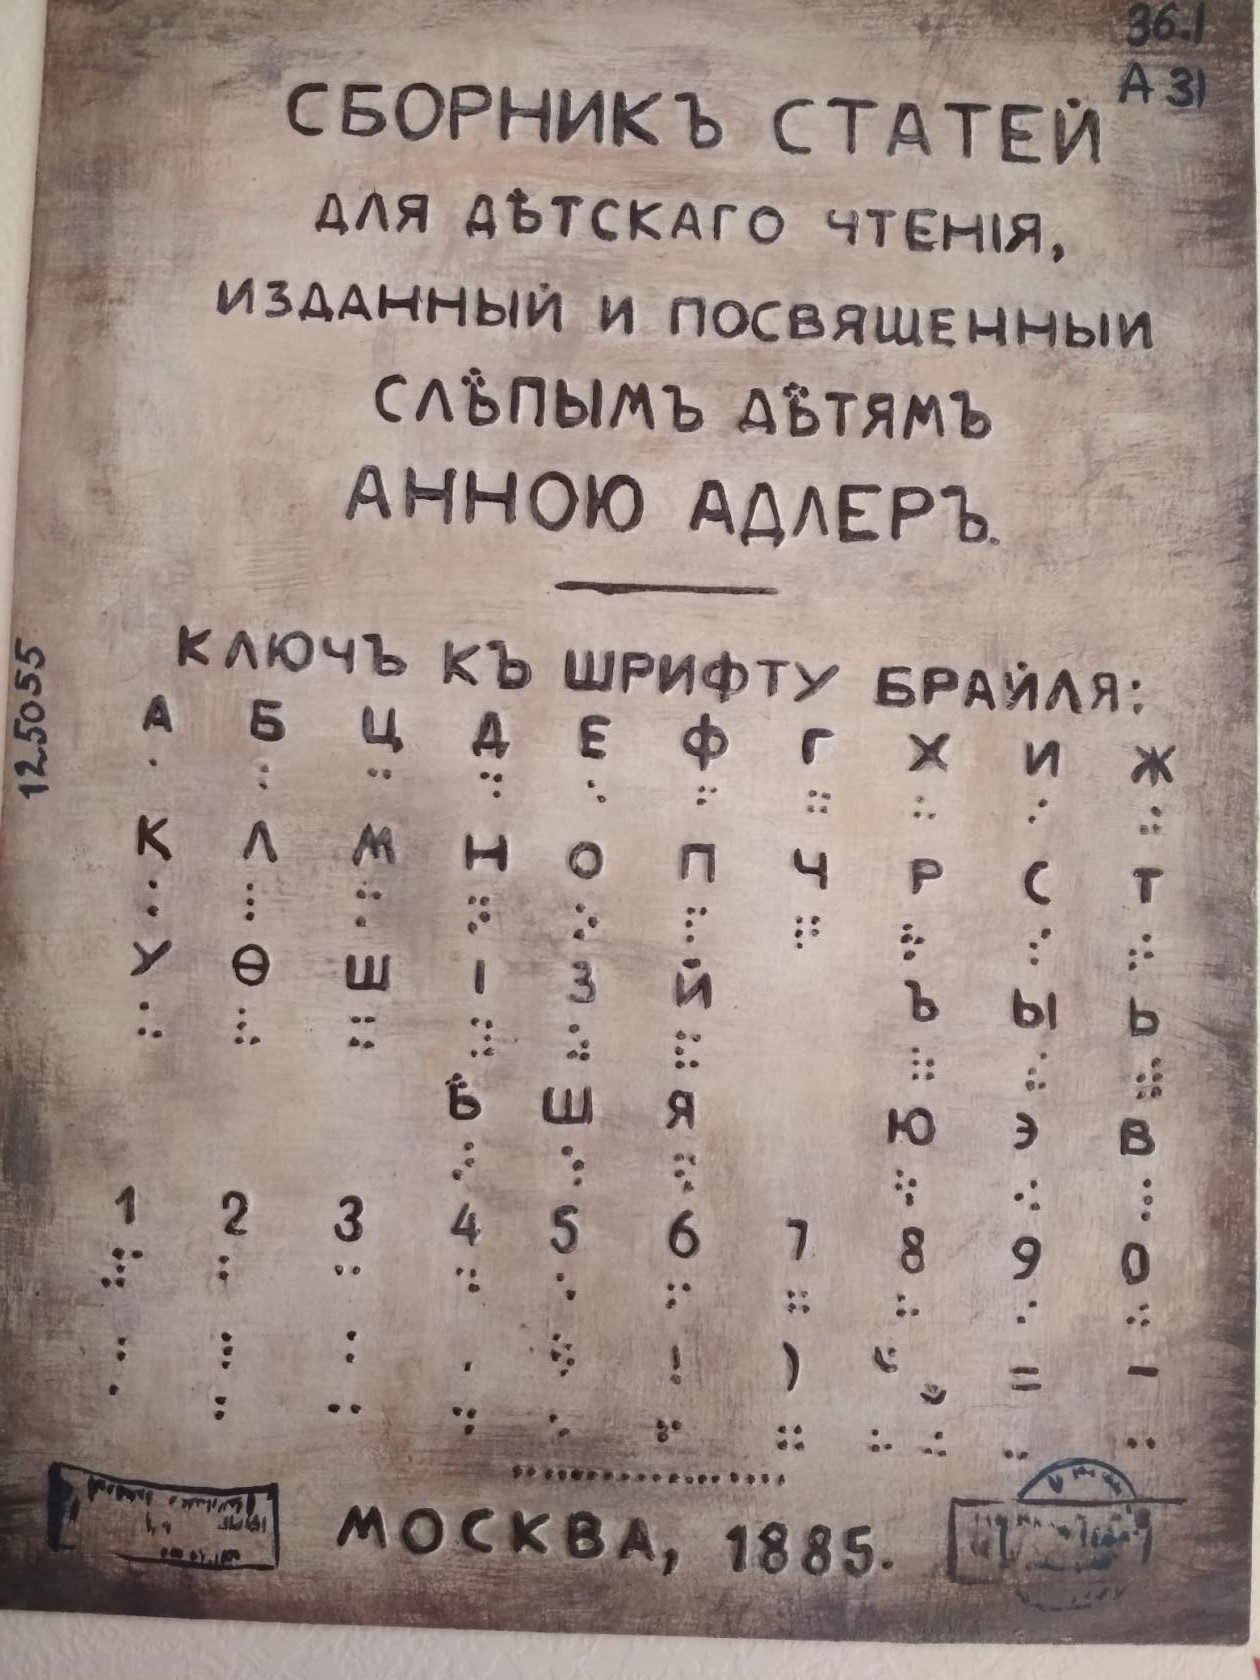 36.1
А 31
СБОРНИКЪ СТАТЕЙ
ДЛЯ ДѢТСКАГО ЧТЕНІЯ,
ИЗДАННЫЙ И ПОСВЯЩЕННЫИ
СЛѢПЫМЪ ДѢТЯМЪ
АННОЮ АДЛЕРЪ.
125055
КЛЮЧЪ КЪ ШРИФТУ БРАЙЛЯ:
А Б Ц Д Е Ф Г Х И Ж
К Л М Н О П Ч Р С Т
У Ѳ Ш І З Й Ъ Ы Ь
Ѣ Ш Я Ю Э В
1 2 3 4 5 6 7 8 9 0
! ) = –
МОСКВА, 1885.